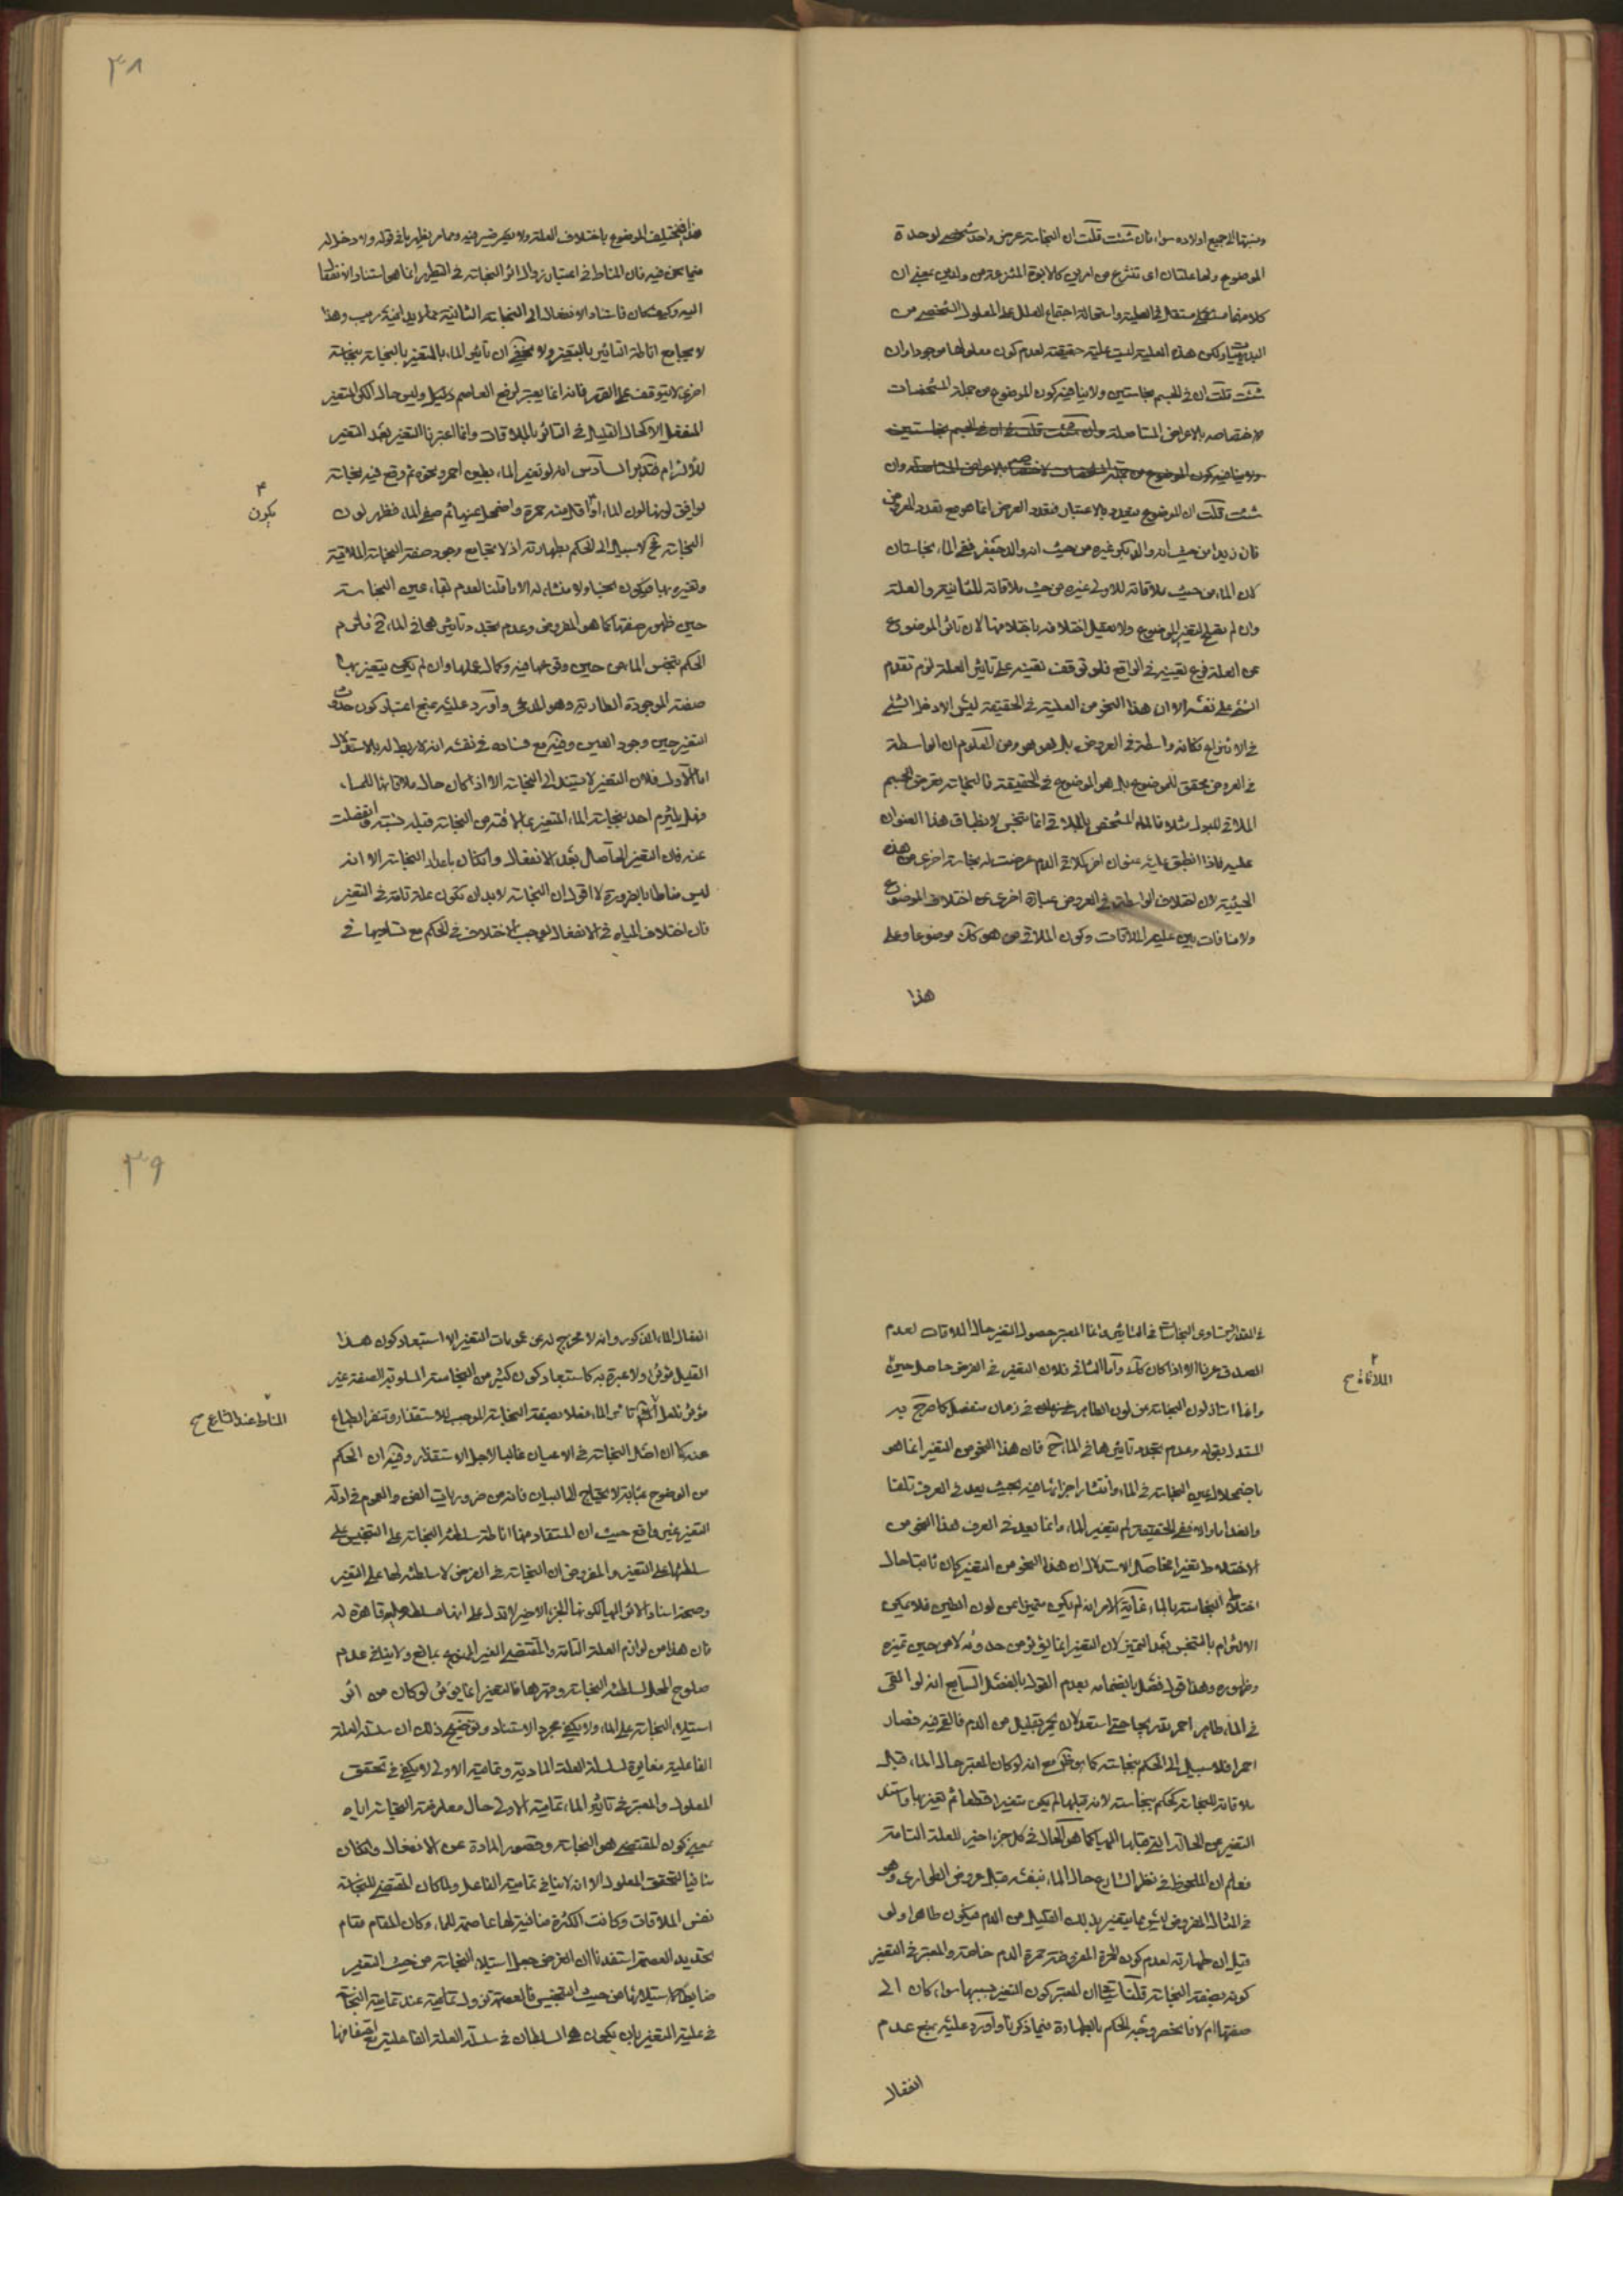 ونسبتها الى جميع اولاده سواء فان شئت قلت ان النجاسة عرض واحد شخصي لوحدة
الموضوع ولها علتان اى تنتزع من امرين كالابوة المنتزعة من ولدين بمعنى ان
كلا منهما مستقل في العلية واستحالة اجتماع العلل على المعلول الشخصي من
البديهيات ولكن هذه العلية ليست علية حقيقة لعدم كون معلولها موجودا وان
شئت قلت ان في الجسم نجاستين ولا ينافيه كون الموضوع من جملة المشخصات
لاختصاصه بالاعراض المتاصلة وان شئت قلت ان في الجسم نجاستين
ولا ينافيه كون الموضوع من جملة المشخصات لاختصاصه بالاعراض المتاصلة وان
شئت قلت ان الموضوع متعدد بالاعتبار فتعدد العرض انما هو مع تعدد المعروض
فان زيدا من حيث انه والد لبكر غيره من حيث انه والد لجعفر ففي الماء نجاستان
لان الماء من حيث ملاقاته للاولى غيره من حيث ملاقاته للثانية والعلة
وان لم تقع لتغير الموضوع ولا يعقل اختلافه باختلافها لان تاثر الموضوع
عن العلة فرع تعينه في الواقع فلو توقف تعينه على تاثير العلة لزم تقدم
الشئ على نفسه الا ان هذا النحو من العلية في الحقيقة ليس الا دخل الشئ
في الانتزاع فكانه واسطة في العروض بل هو هو ومن المعلوم ان الواسطة
في العروض محقق للموضوع بل هو الموضوع في الحقيقة فالنجاسة تعرض الجسم
الملاقي للبول مثلا فالماء المشخص بالملاقي انما تنجس لانطباق هذا العنوان
عليه فاذا انطبق عليه عنوان اخر كملاقي الدم عرضت له نجاسة اخرى من هذه
الحيثية لان اختلاف الواسطة في العروض عبارة اخرى عن اختلاف الموضوع
ولا منافات بين علية الملاقات وكون الملاقي من هو كك موضوعا وعلى
هذا
٣٨
هذا فيختلف الموضوع باختلاف العلة ولا يكاد ضير فيه ومما مر يظهر ما في قوله ولا دخل له
فيما نحن فيه فان المناط في اعتبار زوال اثر النجاسة في التطهير انما هي استناد الانفعال
اليه وكيف كان فاستناد الانفعال الى النجاسة الثانية مما لا يدانيه ريب وهذا
لا يجامع اناطة التاثير بالتغير ولا يخفى ان تاثير الماء بالمتغير بالنجاسة بنجاسة
اخرى لا يتوقف على التغير فانه انما يعتبر لرفع العاصم وليس حال الكر المتغير
المنفعل الا كحال القليل في التاثر بالملاقات وانما اعتبرنا التغير بعد التغير
للالتزام السادس انه لو تغير الماء بطين احمر ونحوه ثم وقع فيه نجاسة
يوافق لونها لون الماء او اقل منه حمرة واضمحل عينها ثم صفى الماء فظهر لون
٣
يكون
النجاسة فح لا سبيل الى الحكم بطهارته اذ لا تجامع وجود صفة النجاسة الملاقية
وتغيره بها فيكون نجسا ولا منشاء له الا ما قلنا لعدم بقاء عين النجاسة
حين ظهور صفتها كما هو المفروض وعدم تجدد تاثيرها في الماء ح فلزم
الحكم بتنجس الماء من حين وقوعها فيه وكمال عملها وان لم يكن يتغير بها
صفته الموجودة الطارية وهو المدعى واورد عليه بمنع اعتبار كون حدوث
التغير حين وجود العين وفيه مع فساده في نفسه انه لا ربط له بالاستدلال
اما الاول فلان التغير لا يستند الى النجاسة الا اذا كان حال ملاقاتها للماء
وهل يلتزم احد بنجاسة الماء المتغير بما لاقته من النجاسة قبله وانفصلت
عنه فان التغير الحاصل بعد الانفعال وان كان باعداد النجاسة الا انه
ليس مناطا بالضرورة لا اقول ان النجاسة لابد ان تكون علة تامة في التغير
فان اختلاف المياه في الانفعال لا يوجب اختلاف في الحكم مع تساويها في
في المقدار وتساوى النجاسات في التاثير وانما المعتبر حصول التغير حال الملاقات لعدم
الصدق عرفا الا اذا كان كك واما الثاني فلان التغير في الفرض حاصل حين
٢
الملاقاة ح
وانما امتاز لون النجاسة من لون الطاهر في زمان منفصل كما صرح به
المستدل بقوله وعدم تجدد تاثيرها في الماء ح فان هذا النحو من التغير انما هو
باضمحلال عين النجاسة في الماء وانتشار اجزائها فيه بحيث يعد في العرف تلفا
وانعداما والا ففي الحقيقة لم يتغير الماء وانما يعد في العرف هذا النحو من
الاختلاط تغيرا فحاصل الاستدلال ان هذا النحو من التغير كان ثابتا حال
اختلاط النجاسة بالماء غاية الامر انه لم يكن متميزا عن لون الطين فلا يمكن
الالتزام بالتنجس بعد التميز لان التغير انما يؤثر من حدوثه لا من حين تميزه
وظهوره وهذا قول فصل بانضمامه بعدم القول بالفصل السابع انه لو القى
في الماء طاهر احمر بقدر يجامع استعداد لان يحمر بقليل من الدم فالقى فيه فصار
احمر فلا سبيل الى الحكم بنجاسته كما هو ظاهر مع انه لو كان المعتبر حال الماء قبل
ملاقاته للنجاسة لحكم بنجاسته لانه قبلها لم يكن متغيرا قطعا ثم تغير بها واستند
التغير عن الحالة التي قبلها اليها كما هو الحال في كل جزء اخير للعلة التامة
فعلم ان الملحوظ في نظر الشارع حال الماء بنفسه قبل عروض الطوارى وهو
في المثال المفروض ليس مما يتغير بذلك القليل من الدم فيكون طاهرا ولو
قيل ان طهارته لعدم كون الحمرة المفروضة حمرة الدم خاصة والمعتبر في التغير
كونه بصفة النجاسة قلنا ان المعتبر كون التغير بسببها سواء كان الى
صفتها ام لا فانحصر وجه الحكم بالطهارة فيما ذكرنا واورد عليه بمنع عدم
انفعال
٣٩
انفعال الماء المذكور وانه لا مخرج له عن عمومات التغير الا استبعاد كون هذا
القليل مؤثرا ولا عبرة به كاستبعاد كون كثير من النجاسة المسلوبة الصفة غير
مؤثر فلعل تاثير الماء فعلا بصفة النجاسة الموجب للاستقذار وتنفر الطباع
المناط عند الشارع ح
عنه كما ان اصل النجاسة في الاعيان غالبا لاجل الاستقذار وفيه ان الحكم
من الوضوح بمثابة لا يحتاج الى البيان فانه من ضروريات الفن والعموم في ادلة
التغير غير واقع حيث ان المستفاد منها اناطة سلطنة النجاسة على التنجيس على
سلطنتها على التغير والمفروض ان النجاسة في الفرض لا سلطنة لها على التغير
وصحة اسناد الاثر اليها لكونها الجزء الاخير لا تدل على انها مسلطة وقاهرة له
فان هذا من لوازم العلة التامة والمقتضي الغير الممنوع بمانع ولا ينافي عدم
صلوح المحل لسلطنة النجاسة وقهرها فالتغير انما يؤثر لو كان من اثر
استيلاء النجاسة على الماء ولا يكفي مجرد الاستناد وتوضيح ذلك ان سلسلة العلة
الفاعلية مغايرة لسلسلة العلة المادية وتمامية الاولى لا يكفي في تحقق
المعلول والمعتبر في تاثير الماء تمامية الاولى حال معارضة النجاسة اياه
بمعنى كون المقتضي هو النجاسة وقصور المادة عن الانفعال وان كان
منافيا لتحقق المعلول الا انه لا ينافي تمامية الفاعل ولما كان المقتضي للنجاسة
نفس الملاقات وكانت الكثرة منافية لها عاصمة للماء وكان المقام مقام
تحديد العصمة استفدنا ان الغرض جعل استيلاء النجاسة من حيث التغير
ضابطا لاستيلائها من حيث التنجيس فالعصمة تزول تمامية عند تمامية النجاسة
في علية التغير بان يكون السلطان في سلسلة العلة الفاعلية مع اتصافها